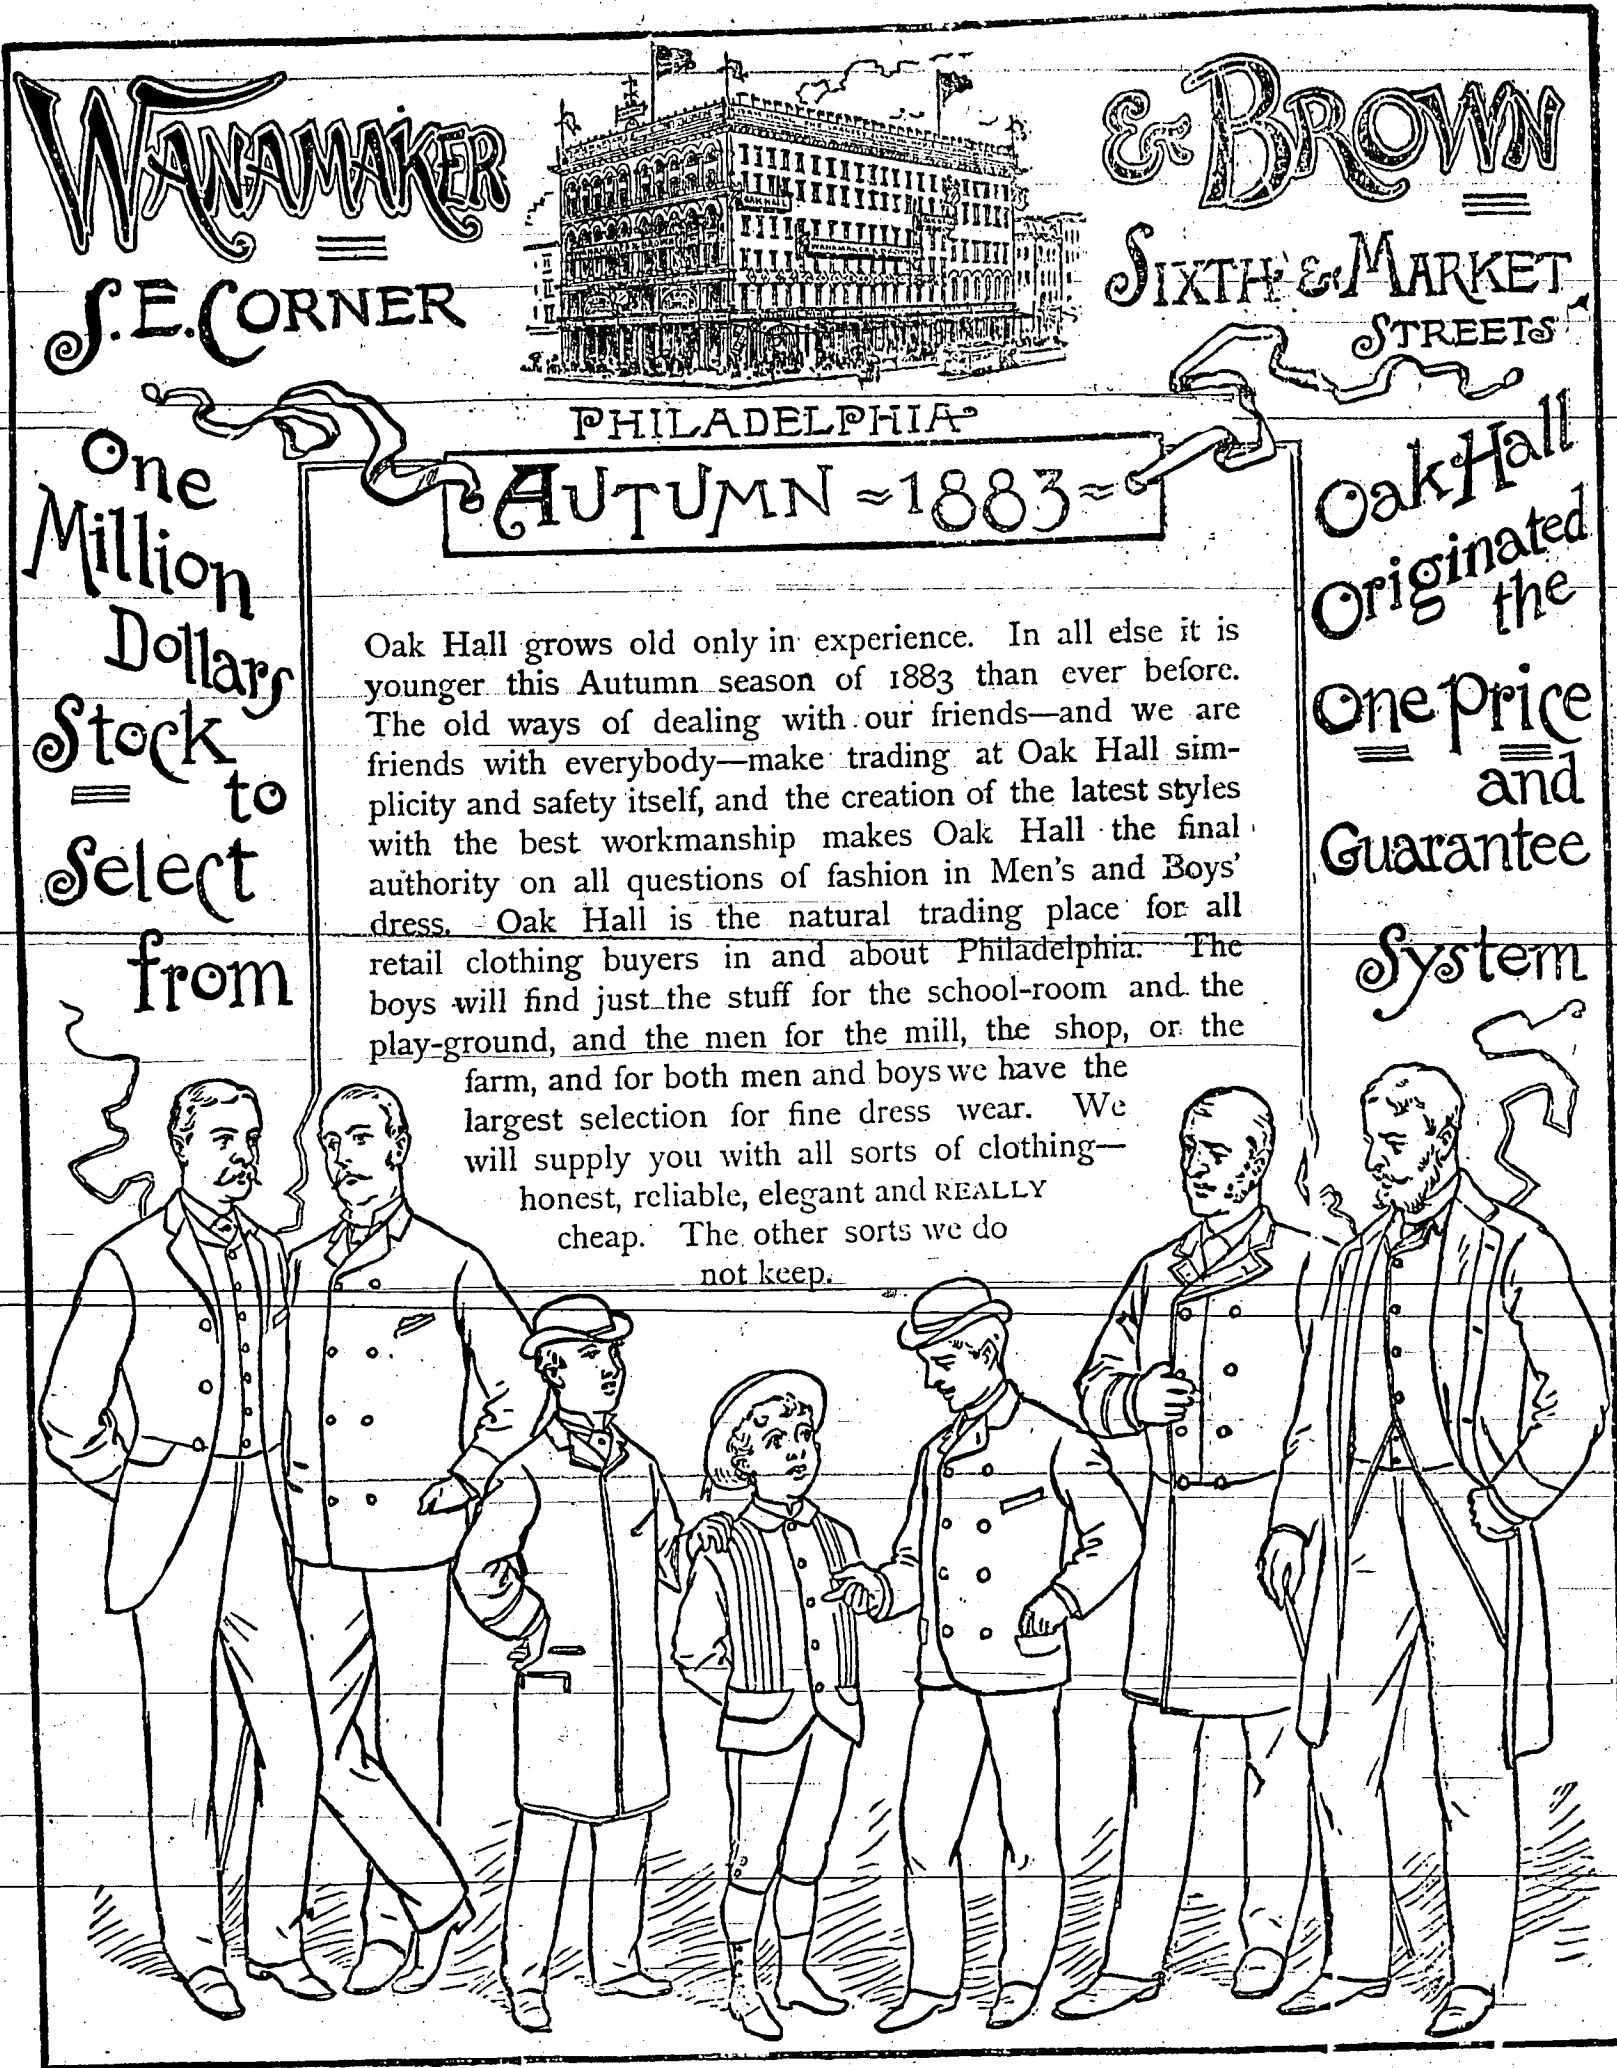 WANAMAKER
& BROWN
S.E. CORNER
SIXTH & MARKET
STREETS
PHILADELPHIA
AUTUMN 1883
One
Million
Dollars
Stock
to
Select
from
Oak Hall grows old only in experience. In all else it is
younger this Autumn season of 1883 than ever before.
The old ways of dealing with our friends—and we are
friends with everybody—make trading at Oak Hall sim-
plicity and safety itself, and the creation of the latest styles
with the best workmanship makes Oak Hall the final
authority on all questions of fashion in Men's and Boys'
dress. Oak Hall is the natural trading place for all
retail clothing buyers in and about Philadelphia. The
boys will find just the stuff for the school-room and the
play-ground, and the men for the mill, the shop, or the
farm, and for both men and boys we have the
largest selection for fine dress wear. We
will supply you with all sorts of clothing—
honest, reliable, elegant and REALLY
cheap. The other sorts we do
not keep.
Oak Hall
Originated
the
One Price
and
Guarantee
System